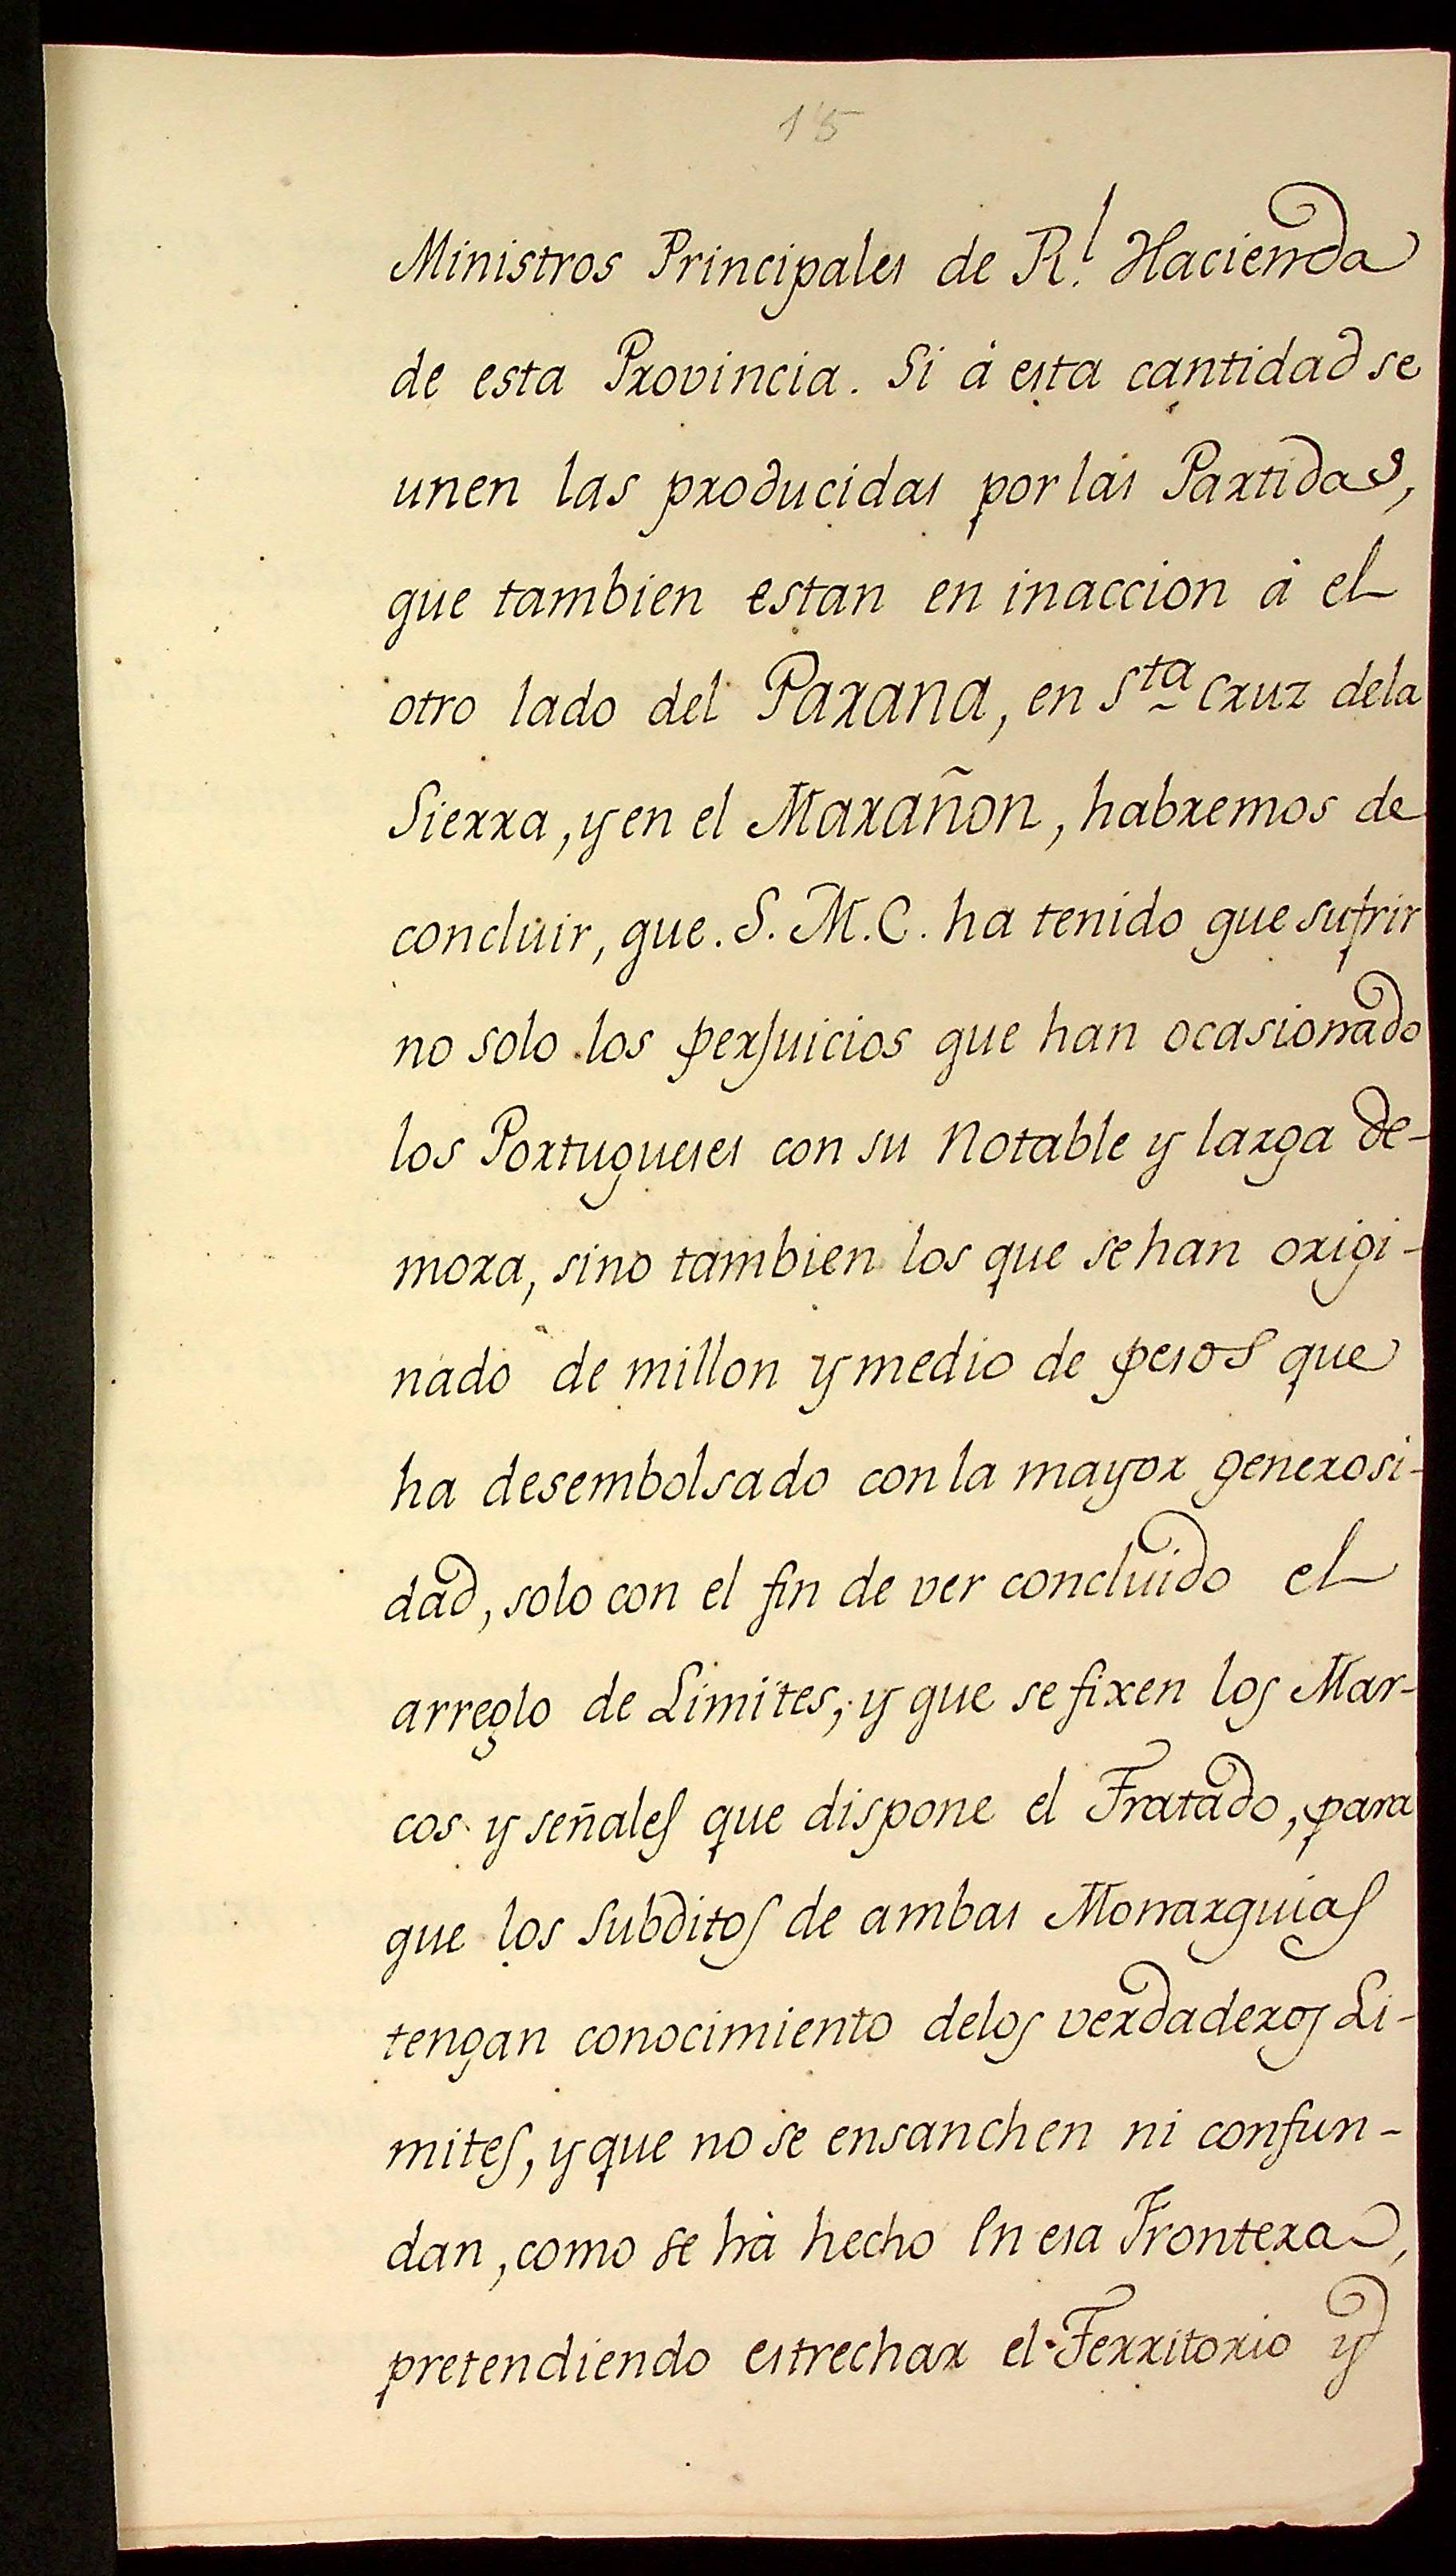 15
Ministros Principales de R.l Hacienda
de esta Provincia. Si á esta cantidad se
unen las producidas por las Partidas,
que tambien estan en inaccion á el
otro lado del Parana, en Sta Cruz dela
Sierra, y en el Marañon, habremos de
concluir, que. S. M. C. ha tenido que sufrir
no solo los perjuicios que han ocasionado
los Portugueses con su notable y larga de-
mora, sino tambien los que se han origi-
nado de millon y medio de pesos que
ha desembolsado con la mayor generosi-
dad, solo con el fin de ver concluido el
arreglo de Limites, y que se fixen los Mar-
cos y señales que dispone el Tratado, para
que los subditos de ambas Monarquias
tengan conocimiento delos verdaderos Li-
mites, y que no se ensanchen ni confun-
dan, como se há hecho en esa Frontera,
pretendiendo estrechar el Territorio y